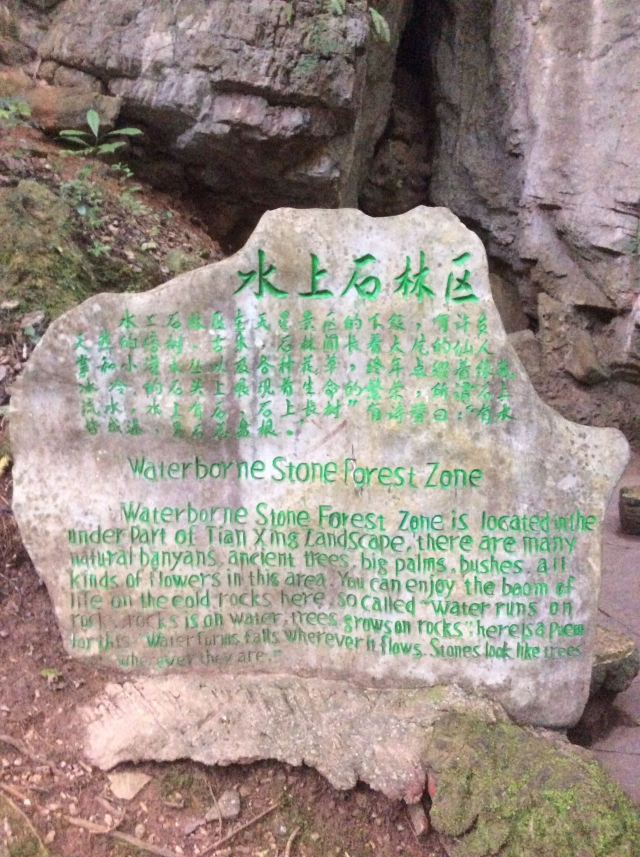 水上石林区
水上石林 天星景区的下 有许多
天然的 树 古 石林间长着大 的仙人
掌和小 以及各种花草
冰冷的石头上 现 生命的繁荣 所谓
流水,水上有石,石上长树" 有诗曰:"有水
皆成瀑 石 盘根。
Waterborne Stone Forest Zone
Waterborne Stone Forest Zone is located in the
under part of Tian Xing Landscape, there are many
natural banyans, ancient trees, big palms, bushes, all
kinds of flowers in this area. You can enjoy the boom of
life on the cold rocks here, so called "Water runs on
rock, rocks is on water, trees grows on rocks", here is a Poem
for this "Water turns falls wherever it flows, Stones look like trees
wherever they are."